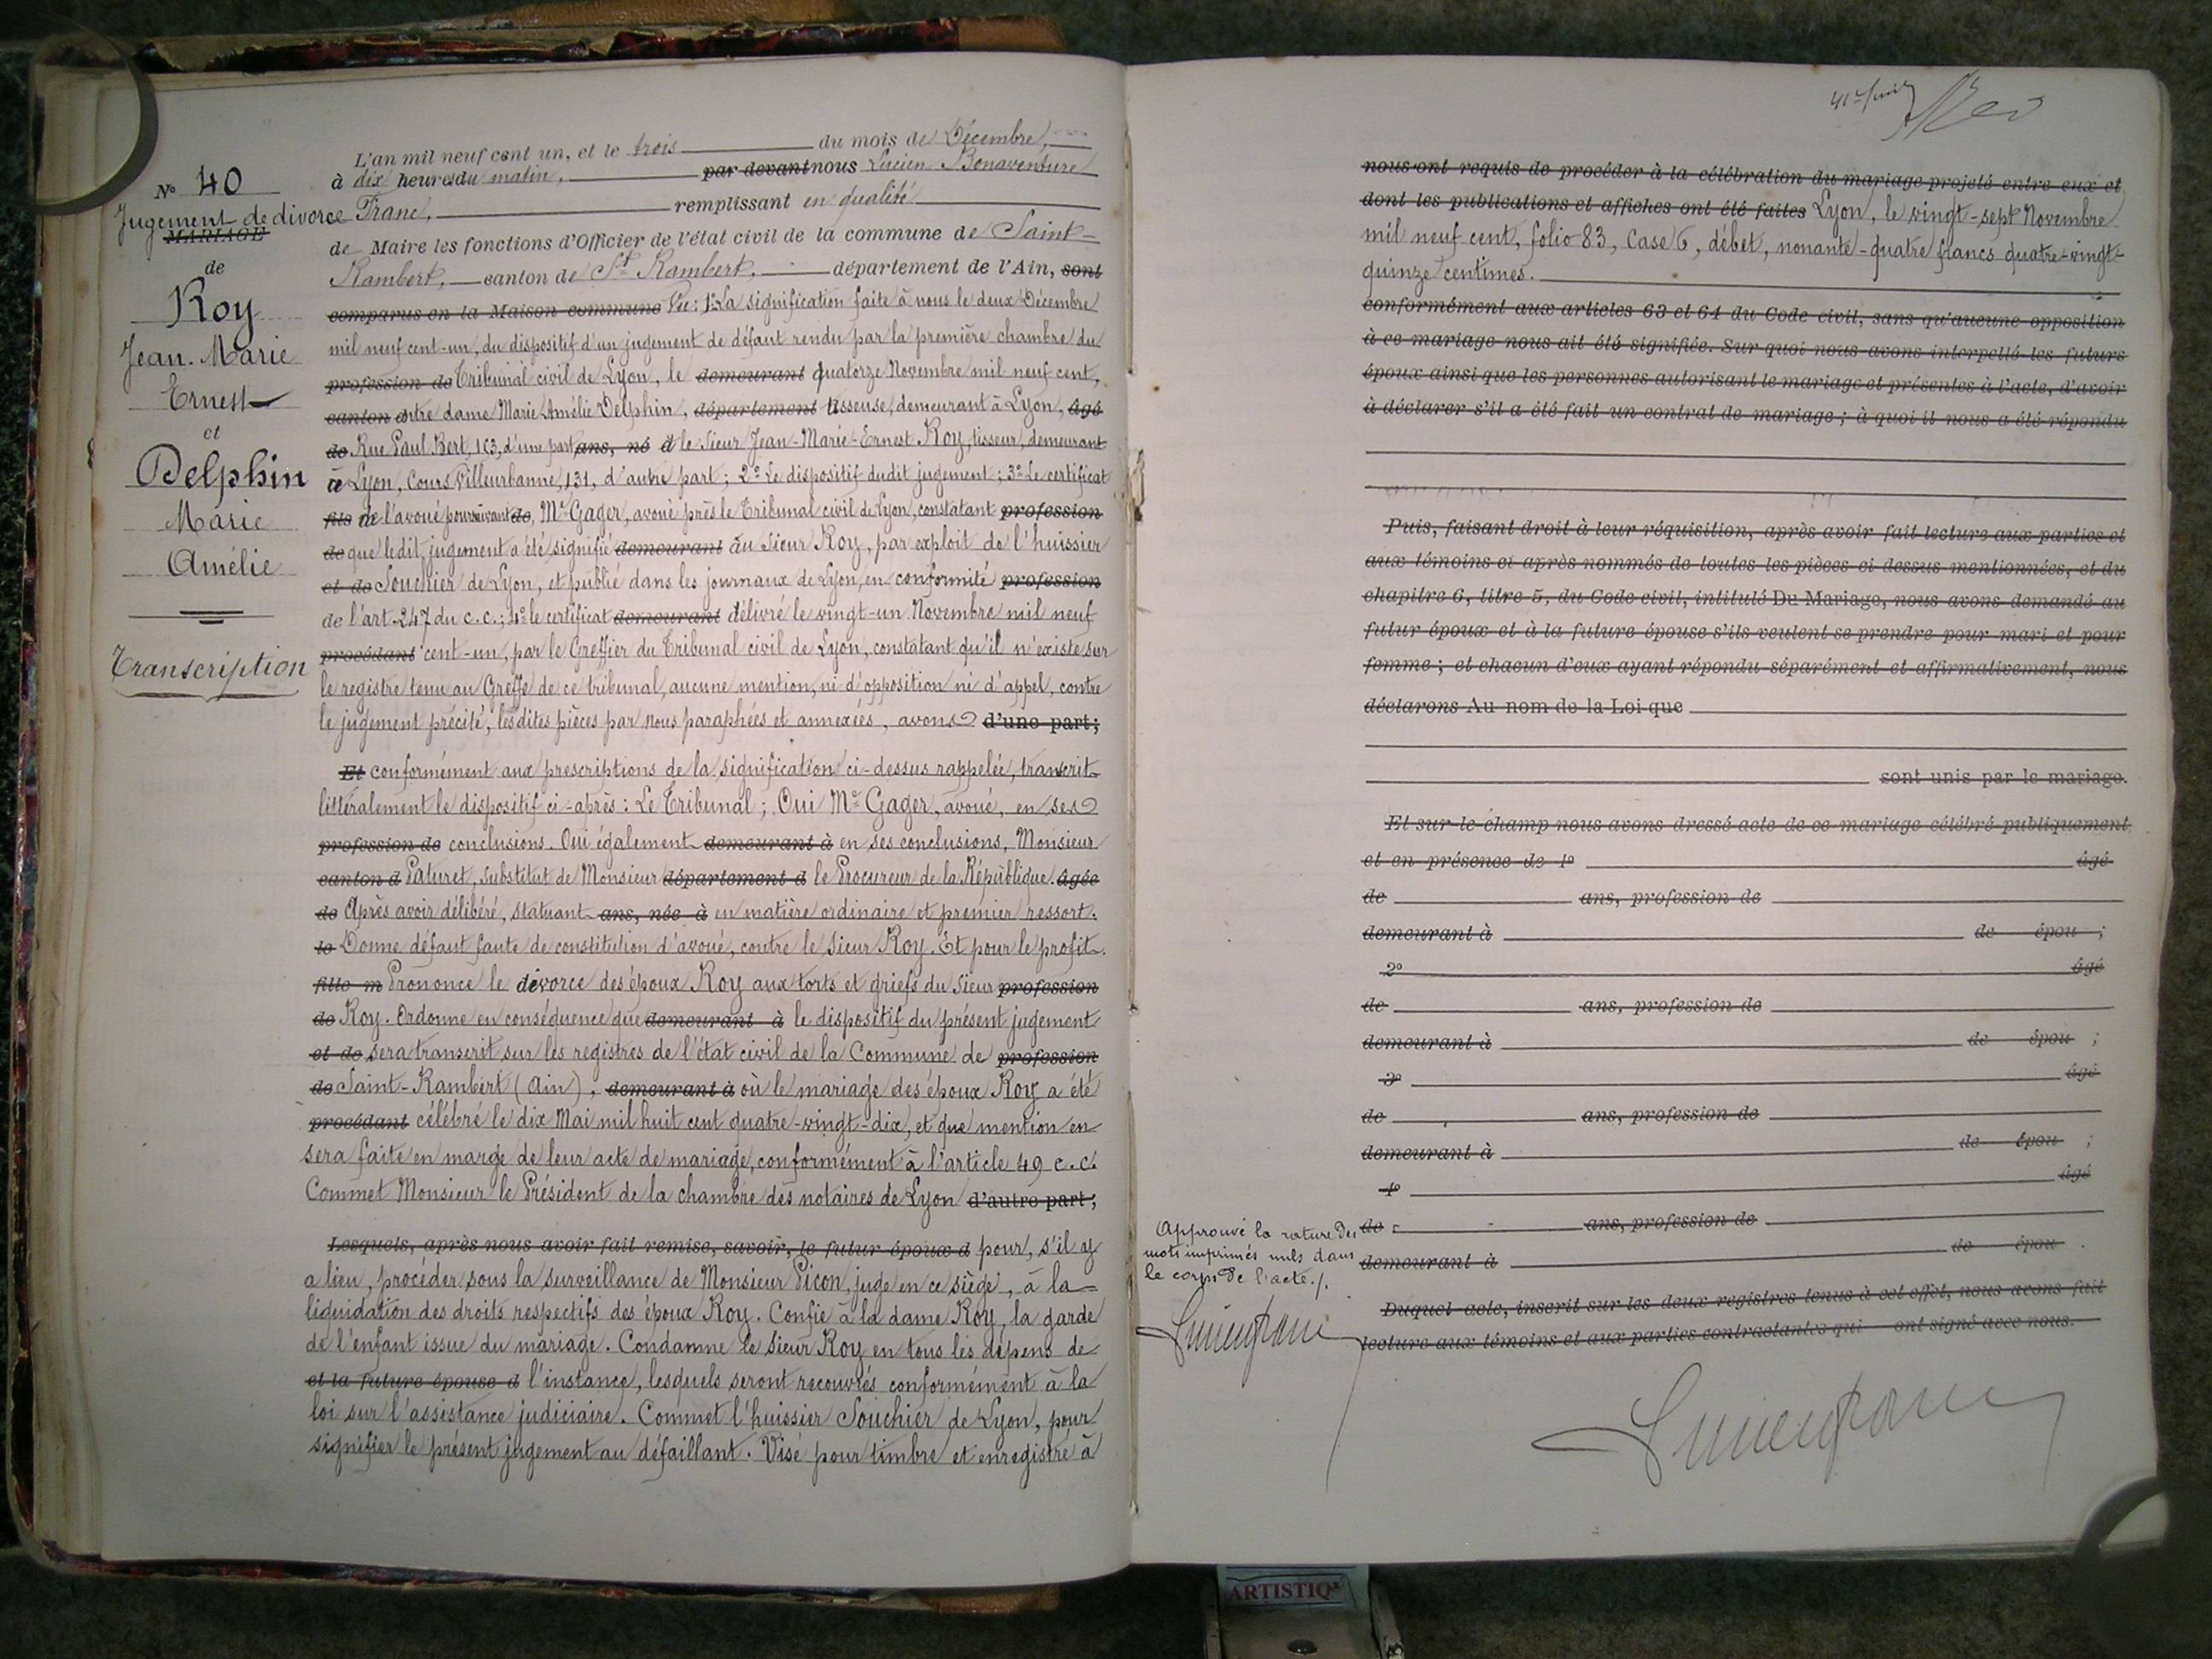 N° 40
Jugement de divorce
MARIAGE
de
Roy
Jean-Marie
Ernest
et
Delphin
Marie
Amélie
Transcription
L'an mil neuf cent un, et le trois du mois de Décembre,
à dix heures du matin, par devant nous Lucien Bonaventure
Franc, remplissant en qualité
de Maire les fonctions d'Officier de l'état civil de la commune de Saint-
Rambert, canton de St Rambert, département de l'Ain, sont
comparus en la Maison commune Vu: 1° La signification faite à nous le deux Décembre
mil neuf cent-un, du dispositif d'un jugement de défaut rendu par la première chambre du
profession de Tribunal civil de Lyon, le demeurant quatorze Novembre mil neuf cent,
canton entre dame Marie Amélie Delphin, département tisseuse, demeurant à Lyon, âgé
de Rue Paul Bert, 103, d'une part ans, né et le Sieur Jean-Marie-Ernest Roy, tisseur, demeurant
à Lyon, Cours Villeurbanne, 131, d'autre part; 2° Le dispositif dudit jugement; 3° Le certificat
fils de l'avoué poursuivant de, Me Gager, avoué près le Tribunal civil de Lyon, constatant profession
de que ledit jugement a été signifié demeurant au Sieur Roy, par exploit de l'huissier
et de Souchier de Lyon, et publié dans les journaux de Lyon, en conformité profession
de l'art. 247 du c.c.; 4° le certificat demeurant délivré le vingt-un Novembre mil neuf
procédant cent-un, par le Greffier du Tribunal civil de Lyon, constatant qu'il n'existe sur
le registre tenu au Greffe de ce tribunal, aucune mention, ni d'opposition ni d'appel, contre
le jugement précité, lesdites pièces par nous paraphées et annexées, avons d'une part;
Et conformément aux prescriptions de la signification ci-dessus rappelée, transcrit
littéralement le dispositif ci-après: Le Tribunal; Oui Me Gager, avoué, en ses
profession de conclusions. Oui également demeurant à en ses conclusions, Monsieur
canton d Paturet, substitut de Monsieur département d le Procureur de la République. âgée
de Après avoir délibéré, statuant ans, née à en matière ordinaire et premier ressort.
le Donne défaut faute de constitution d'avoué, contre le Sieur Roy. Et pour le profit.
fille m Prononce le divorce des époux Roy aux torts et griefs du Sieur profession
de Roy. Ordonne en conséquence que demeurant à le dispositif du présent jugement
et de sera transcrit sur les registres de l'état civil de la Commune de profession
de Saint-Rambert (Ain), demeurant à où le mariage des époux Roy a été
procédant célébré le dix Mai mil huit cent quatre-vingt-dix, et que mention en
sera faite en marge de leur acte de mariage, conformément à l'article 49 c.c.
Commet Monsieur le Président de la chambre des notaires de Lyon d'autre part;
Lesquels, après nous avoir fait remise, savoir, le futur époux d pour, s'il y
a lieu, procéder sous la surveillance de Monsieur Picon, juge en ce siège, à la
liquidation des droits respectifs des époux Roy. Confie à la dame Roy, la garde
de l'enfant issue du mariage. Condamne le Sieur Roy en tous les dépens de
et la future épouse d l'instance, lesquels seront recouvrés conformément à la
loi sur l'assistance judiciaire. Commet l'huissier Souchier de Lyon, pour
signifier le présent jugement au défaillant. Visé pour timbre et enregistré à
nous ont requis de procéder à la célébration du mariage projeté entre eux et
dont les publications et affiches ont été faites Lyon, le vingt-sept Novembre
mil neuf cent, folio 83, Case 6, débet, nonante-quatre francs quatre-vingt-
quinze centimes.
conformément aux articles 63 et 64 du Code civil, sans qu'aucune opposition
à ce mariage nous ait été signifiée. Sur quoi nous avons interpellé les futurs
époux ainsi que les personnes autorisant le mariage et présentes à l'acte, d'avoir
à déclarer s'il a été fait un contrat de mariage; à quoi il nous a été répondu
Puis, faisant droit à leur réquisition, après avoir fait lecture aux parties et
aux témoins ci après nommés de toutes les pièces ci dessus mentionnées, et du
chapitre 6, titre 5, du Code civil, intitulé Du Mariage, nous avons demandé au
futur époux et à la future épouse s'ils veulent se prendre pour mari et pour
femme; et chacun d'eux ayant répondu séparément et affirmativement, nous
déclarons Au nom de la Loi que
sont unis par le mariage.
Et sur-le-champ nous avons dressé acte de ce mariage célébré publiquement
et en présence de 1° âgé
de ans, profession de
demeurant à de épou ;
2° âgé
de ans, profession de
demeurant à de épou ;
3° âgé
de ans, profession de
demeurant à de épou ;
4° âgé
de ans, profession de
demeurant à de épou .
Duquel acte, inscrit sur les deux registres tenus à cet effet, nous avons fait
lecture aux témoins et aux parties contractantes qui ont signé avec nous.
Approuvé la rature des
mots imprimés nuls dans
le corps de l'acte./.
Lucien Franc
Lucien Franc
ARTISTIQ